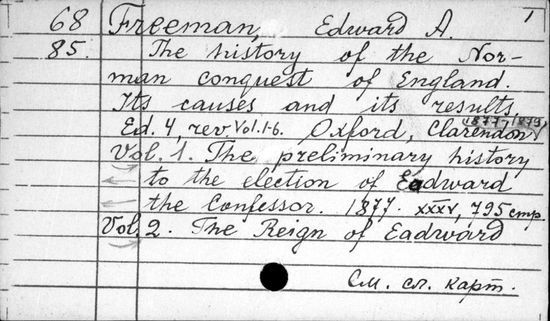 68 Freeman, Edward A. 1
85. The history of the Nor-
man conquest of England.
Its causes and its results.
1877-1879
Ed. 4, rev Vol. 1-6. Oxford, Clarendon
Vol. 1. The preliminary history
to the election of Eadward
the Confessor. 1877. XXXV, 795 стр.
Vol. 2. The Reign of Eadward
См. сл. карт.